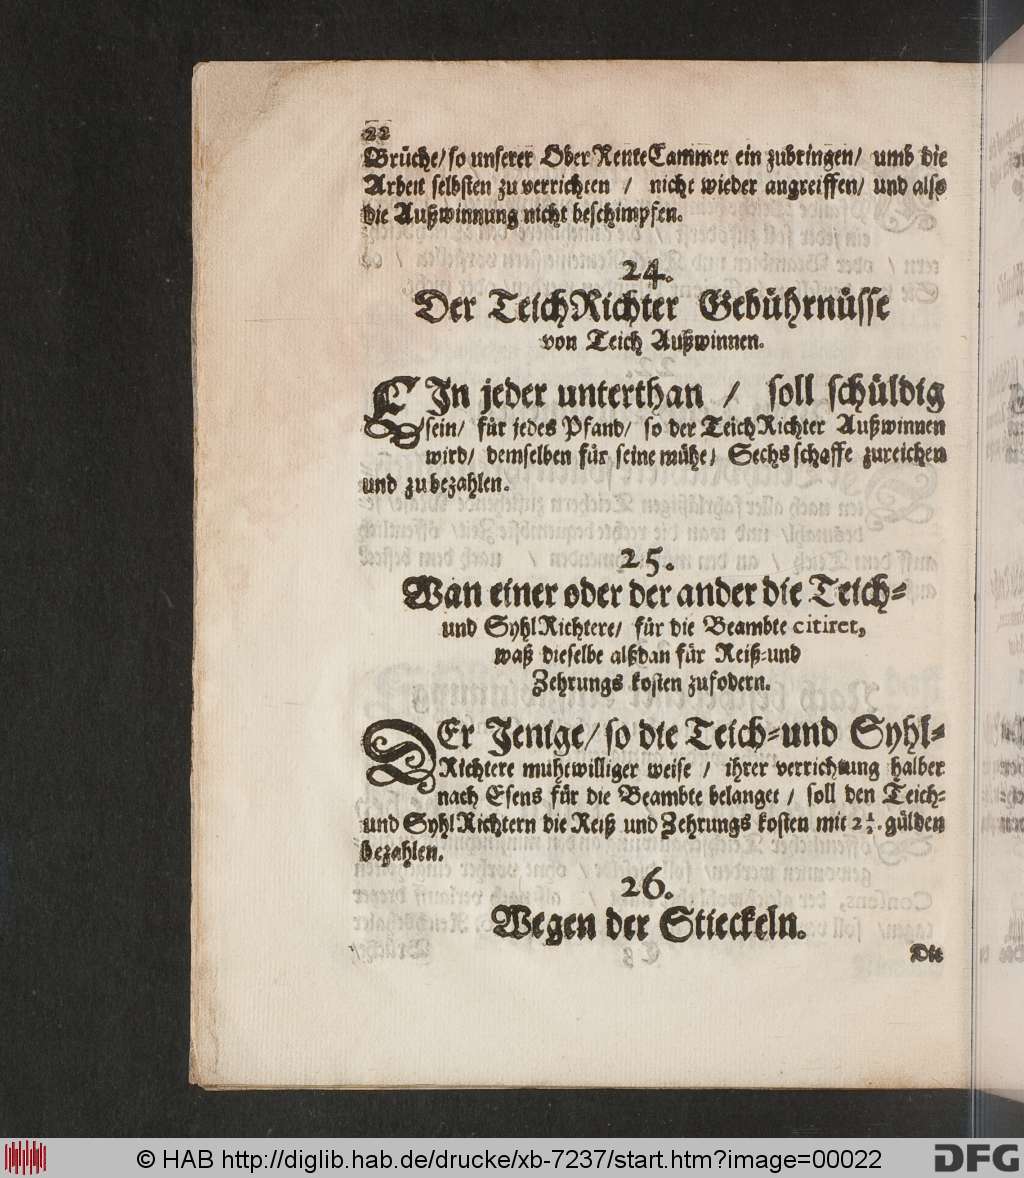 22
Brüche/ so unserer Ober RenteCammer ein zubringen/ umb die
Arbeit selbsten zu verrichten / nicht wieder angreiffen/ und also
die Außwinnung nicht beschimpfen.
24.
Der TeichRichter Gebührnüsse
von Teich Außwinnen.
EIn jeder unterthan / soll schüldig
sein/ für jedes Pfand/ so der TeichRichter Außwinnen
wird/ demselben für seine mühe/ Sechs schaffe zureichen
und zubezahlen.
25.
Wan einer oder der ander die Teich-
und SyhlRichtere/ für die Beambte citiret,
waß dieselbe alßdan für Reiß-und
Zehrungs kosten zufodern.
DEr Jenige/ so die Teich-und Syhl-
Richtere muhtwilliger weise / ihrer verrichtung halber
nach Esens für die Beambte belanget / soll den Teich-
und SyhlRichtern die Reiß und Zehrungs kosten mit 2 1/2. gülden
bezahlen.
26.
Wegen der Stieckeln.
Die
© HAB http://diglib.hab.de/drucke/xb-7237/start.htm?image=00022
DFG